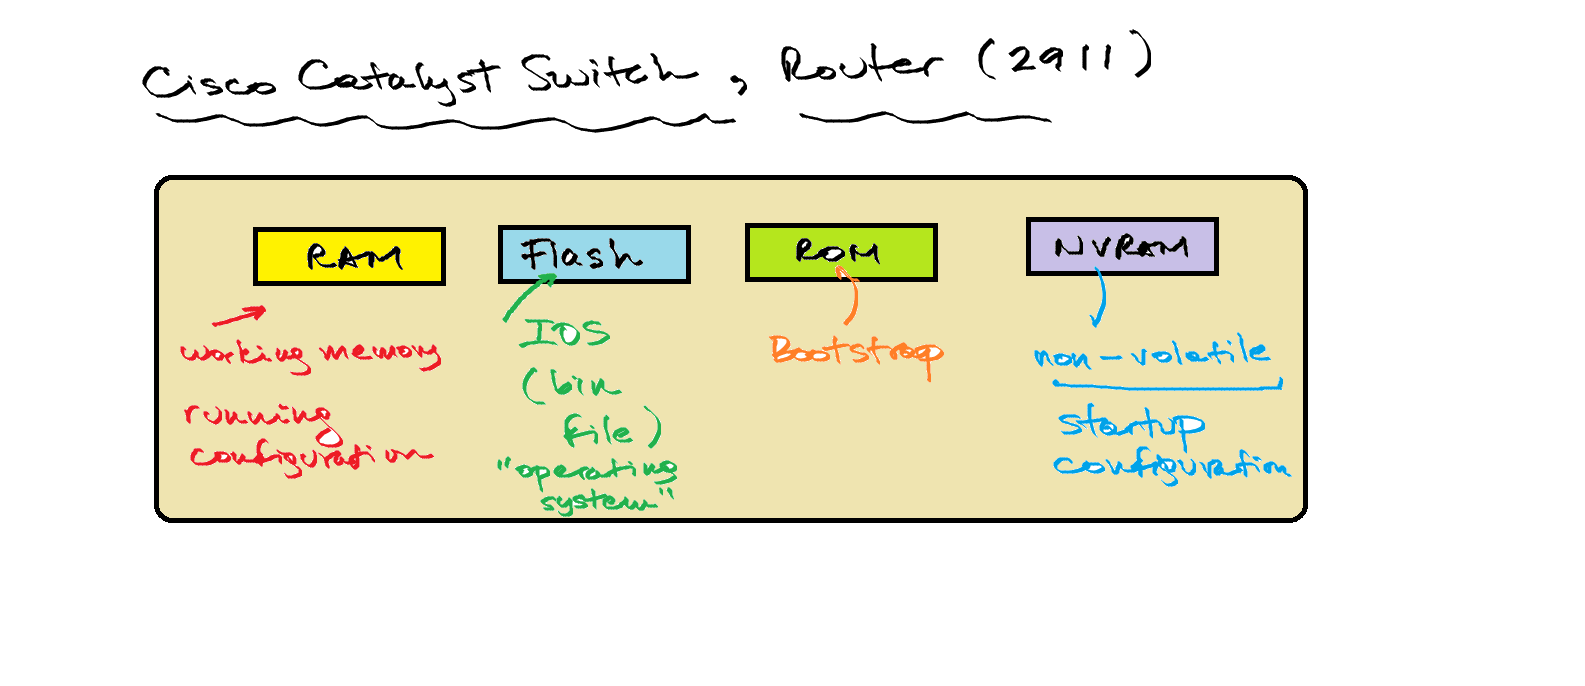 Cisco Catalyst Switch, Router (2911)
RAM
working memory
running
configuration
Flash
IOS
(bin
file)
"operating
system"
ROM
Bootstrap
NVRAM
non-volatile
startup
configuration